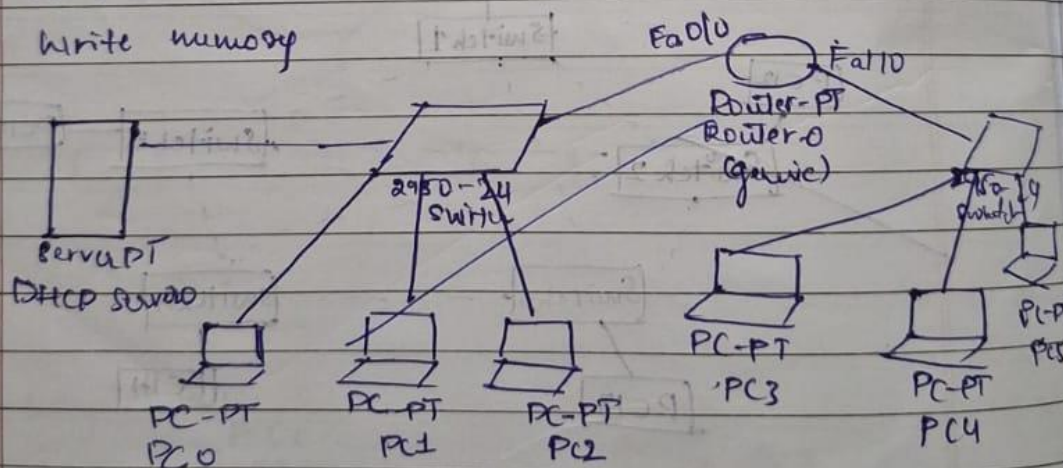 write memory
Fa0/0
Fa1/0
Router-PT
Router-0
(generic)
2950-24
Switch
2950-24
Switch
Server PT
DHCP Server0
PC-PT
PC0
PC-PT
PC1
PC-PT
PC2
PC-PT
PC3
PC-PT
PC4
PC-P
PC5